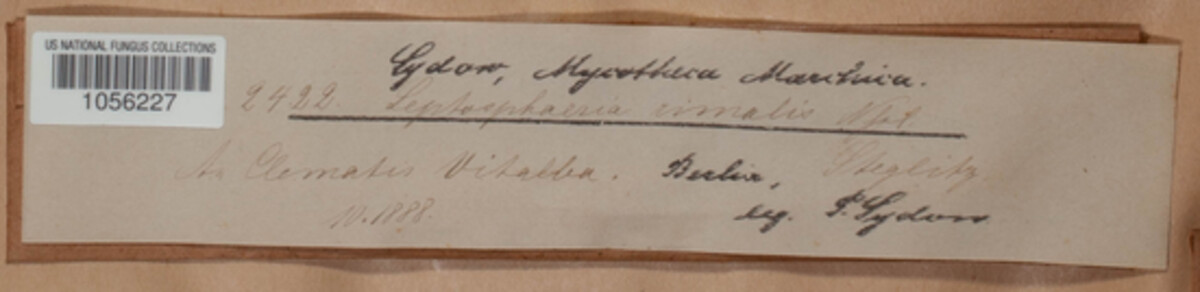 US NATIONAL FUNGUS COLLECTIONS
1056227
Sydow, Mycotheca Marchica.
2422. Leptosphaeria vimalis
A. Clematis Vitalba. Berlin, Steglitz,
10.1888. leg. P. Sydow